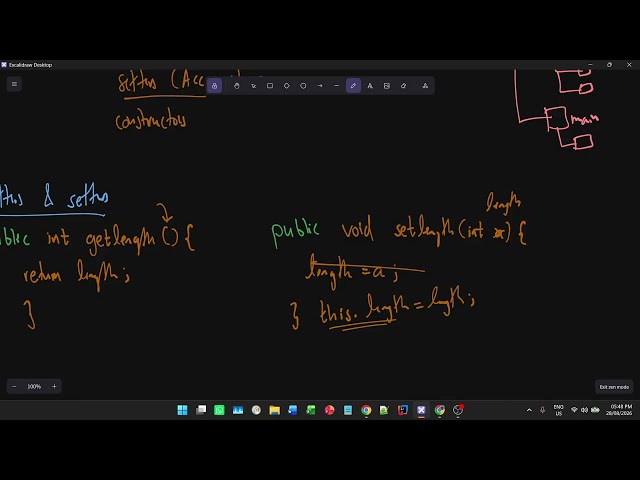 Excalidraw Desktop
setters (Acc
constructors
main
& setters
public int getlength () {
return length;
}
length
public void setlength (int a) {
length = a;
} this. length = length;
100%
Exit zen mode
ENG
US
05:48 PM
28/08/2026